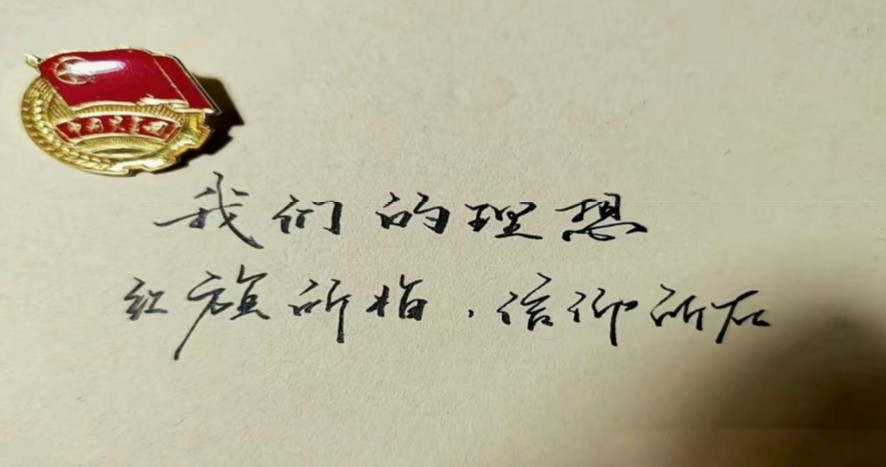 中国共青团
我们的理想
红旗所指，信仰所在